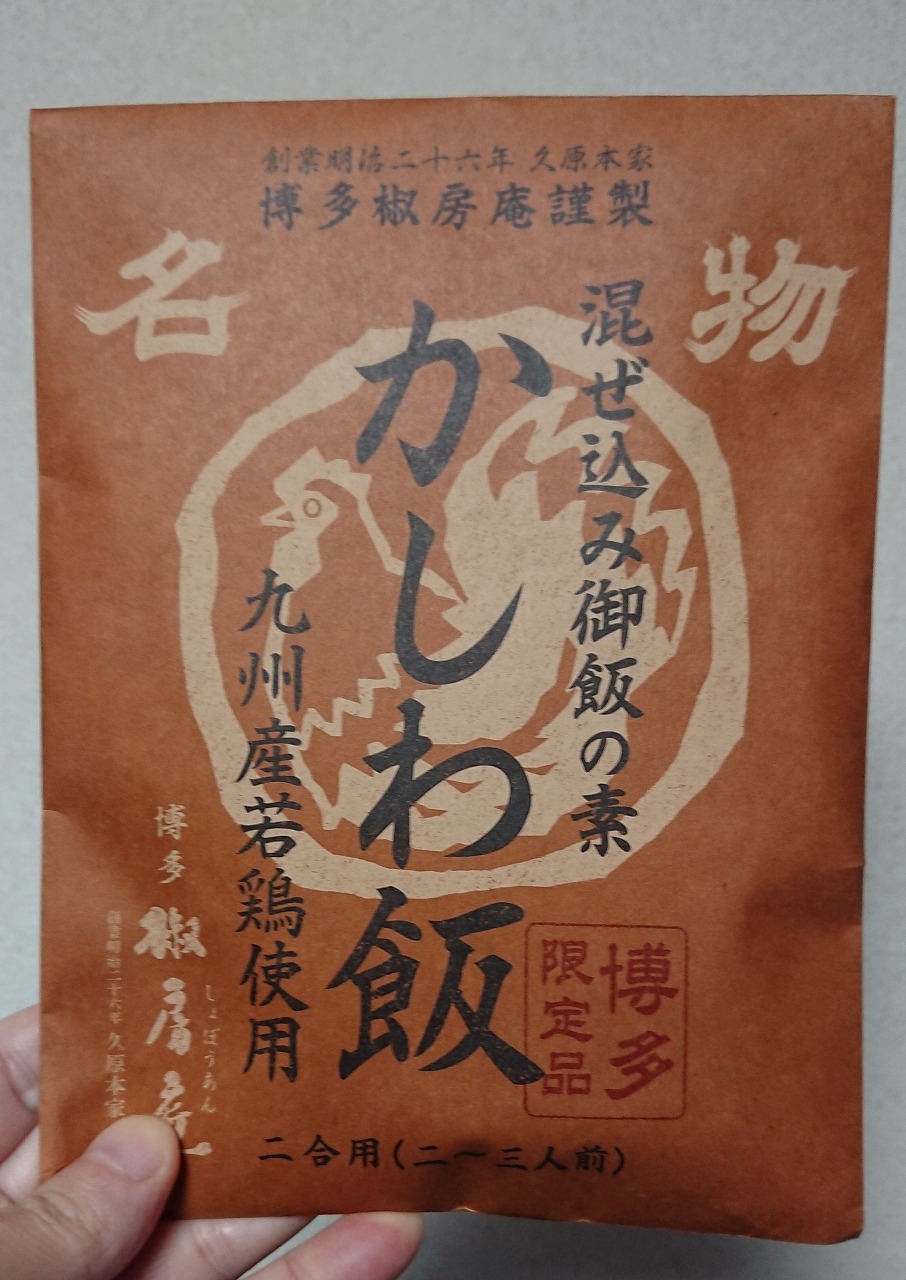 創業明治二十六年 久原本家
博多椒房庵謹製
名物
混ぜ込み御飯の素
かしわ飯
九州産若鶏使用
博多
限定品
博多
椒房庵
しょぼうあん
創業明治二十六年 久原本家
二合用(二〜三人前)